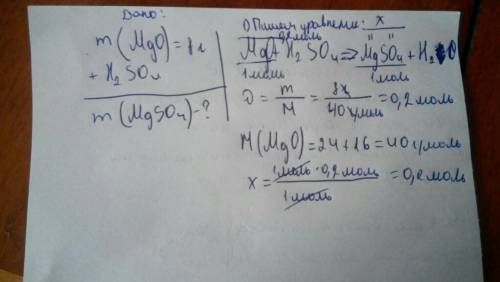 Дано:
m(MgO)=8г
+ H₂SO₄
m(MgSO₄)-?
1) Пишем уравнение:
0,2моль x
MgO+H₂SO₄⇒MgSO₄+H₂O
1моль 1моль
ϑ = m/M = 8г/40г/моль = 0,2моль
M(MgO)=24+16=40г/моль
x = 1моль·0,2моль/1моль = 0,2моль